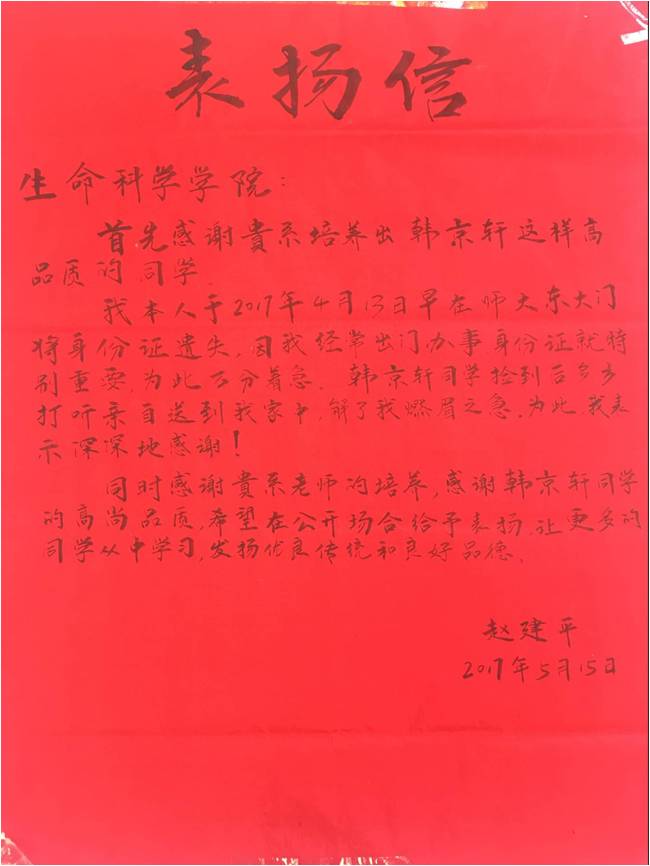 表扬信
生命科学学院:
首先感谢貴系培养出韩京轩这样高
品质的同学.
我本人于2017年4月13日早在师大东大门
将身份证遗失,因我经常出门办事.身份证就特
别重要,为此万分着急. 韩京轩同学捡到后多方
打听亲自送到我家中,解了我燃眉之急.为此,我表
示深深地感谢!
同时感谢貴系老师的培养,感谢韩京轩同学
的高尚品质,希望在公开场合给予表扬,让更多的
同学从中学习,发扬优良传统和良好品德.
赵建平
2017年5月15日